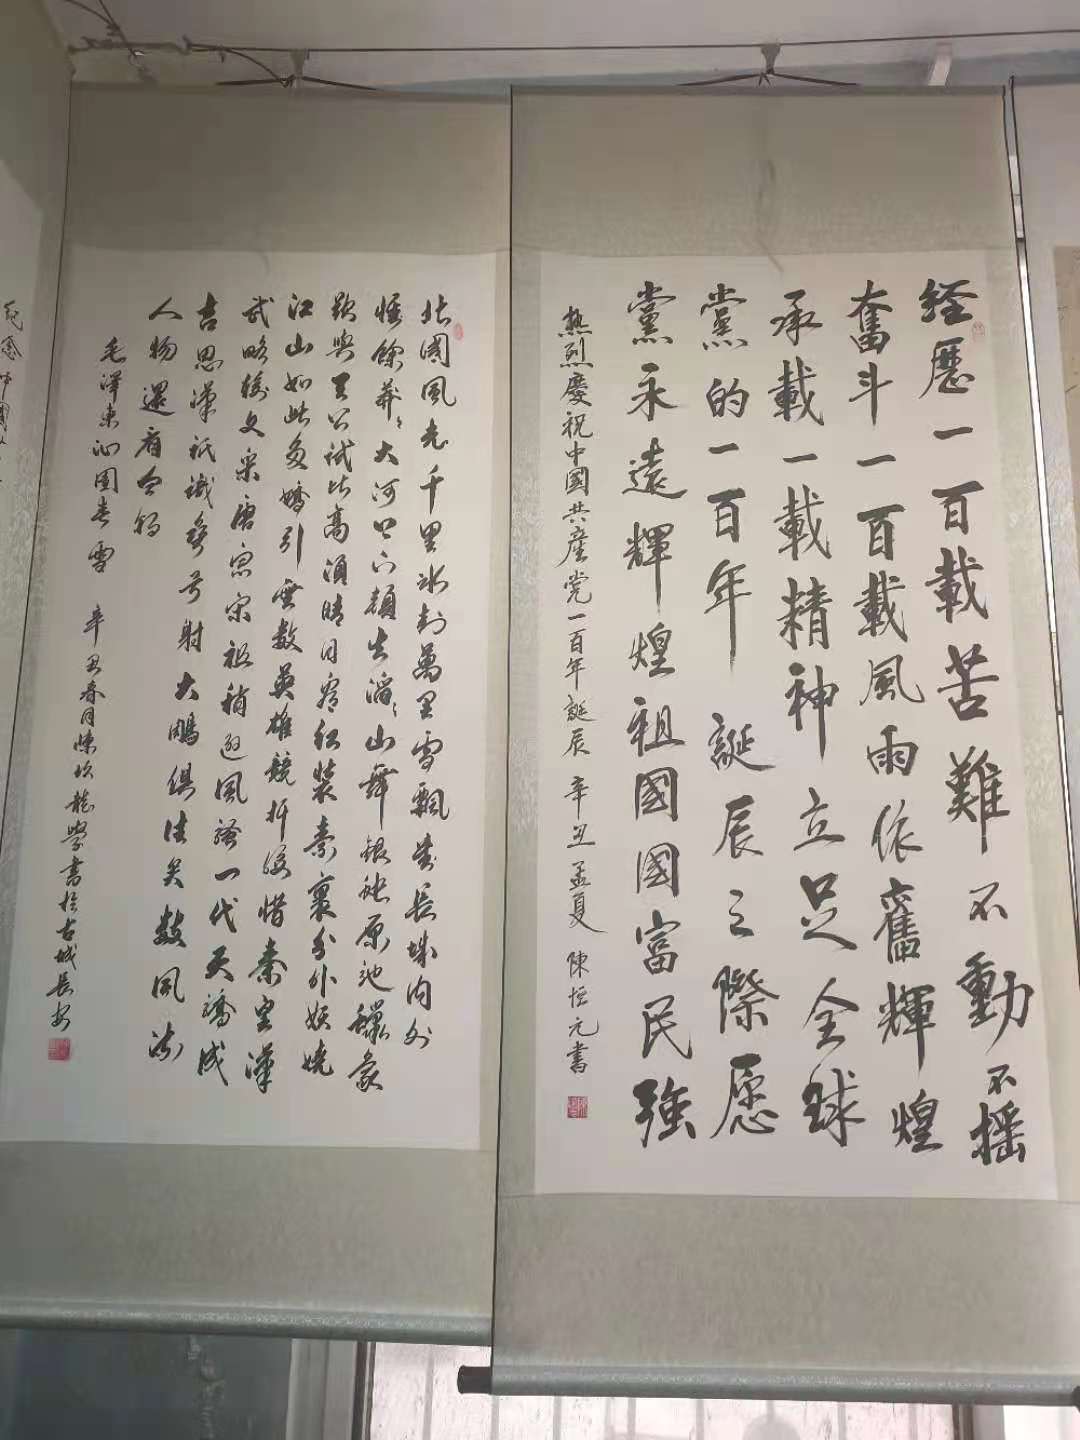 经歷一百載苦難不動不摇
奮斗一百載風雨依舊輝煌
承載一載精神立足全球
黨的一百年誕辰之際愿
黨永遠輝煌祖國國富民強
熱烈慶祝中國共産党一百年誕辰 辛丑孟夏 陳恒元書
北國風光千里冰封萬里雪飄望長城内外
惟餘莽々大河上下頓失滔々山舞銀蛇原馳蠟象
欲與天公試比高須晴日看紅裝素裹分外妖嬈
江山如此多嬌引無數英雄競折腰惜秦皇漢
武略輸文采唐宗宋祖稍遜風騷一代天驕成
吉思漢祇識彎弓射大鵰俱往矣數風流
人物還看今朝
毛澤東沁園春雪 辛丑春月陳 龍學書於古城長安